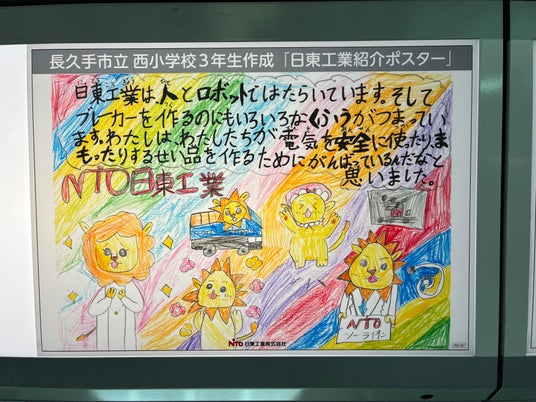 長久手市立 西小学校3年生作成「日東工業紹介ポスター」
日東工業は、人とロボットではたらいています。そして
ブレーカーを作るのにもいろいろなくふうがつまってい
ます。わたしは、わたしたちが電気を安全に使ったり、ま
もったりするせい品を作るためにがんばっているんだなと
思いました。
NTO日東工業
NTO
ソーライオン
NITO 日東工業株式会社